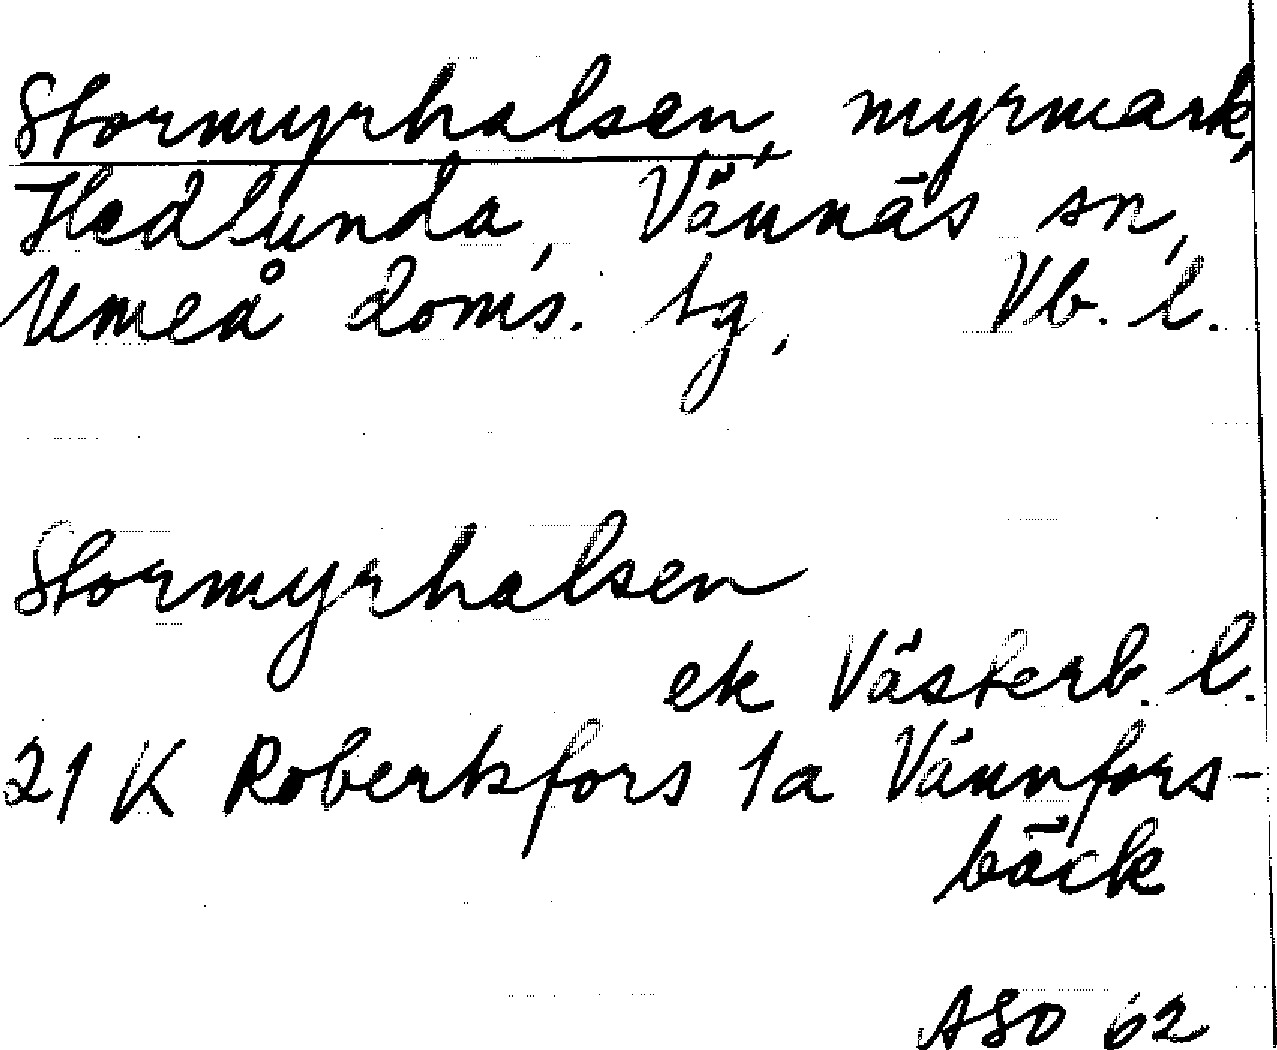 Stormyrhalsen, myrmark,
Hedlunda, Vännäs sn,
Umeå doms. tg, Vb. l.
Stormyrhalsen
ek Västerb. l.
21 K Robertsfors 1a Vännfors-
bäck
ASO 62